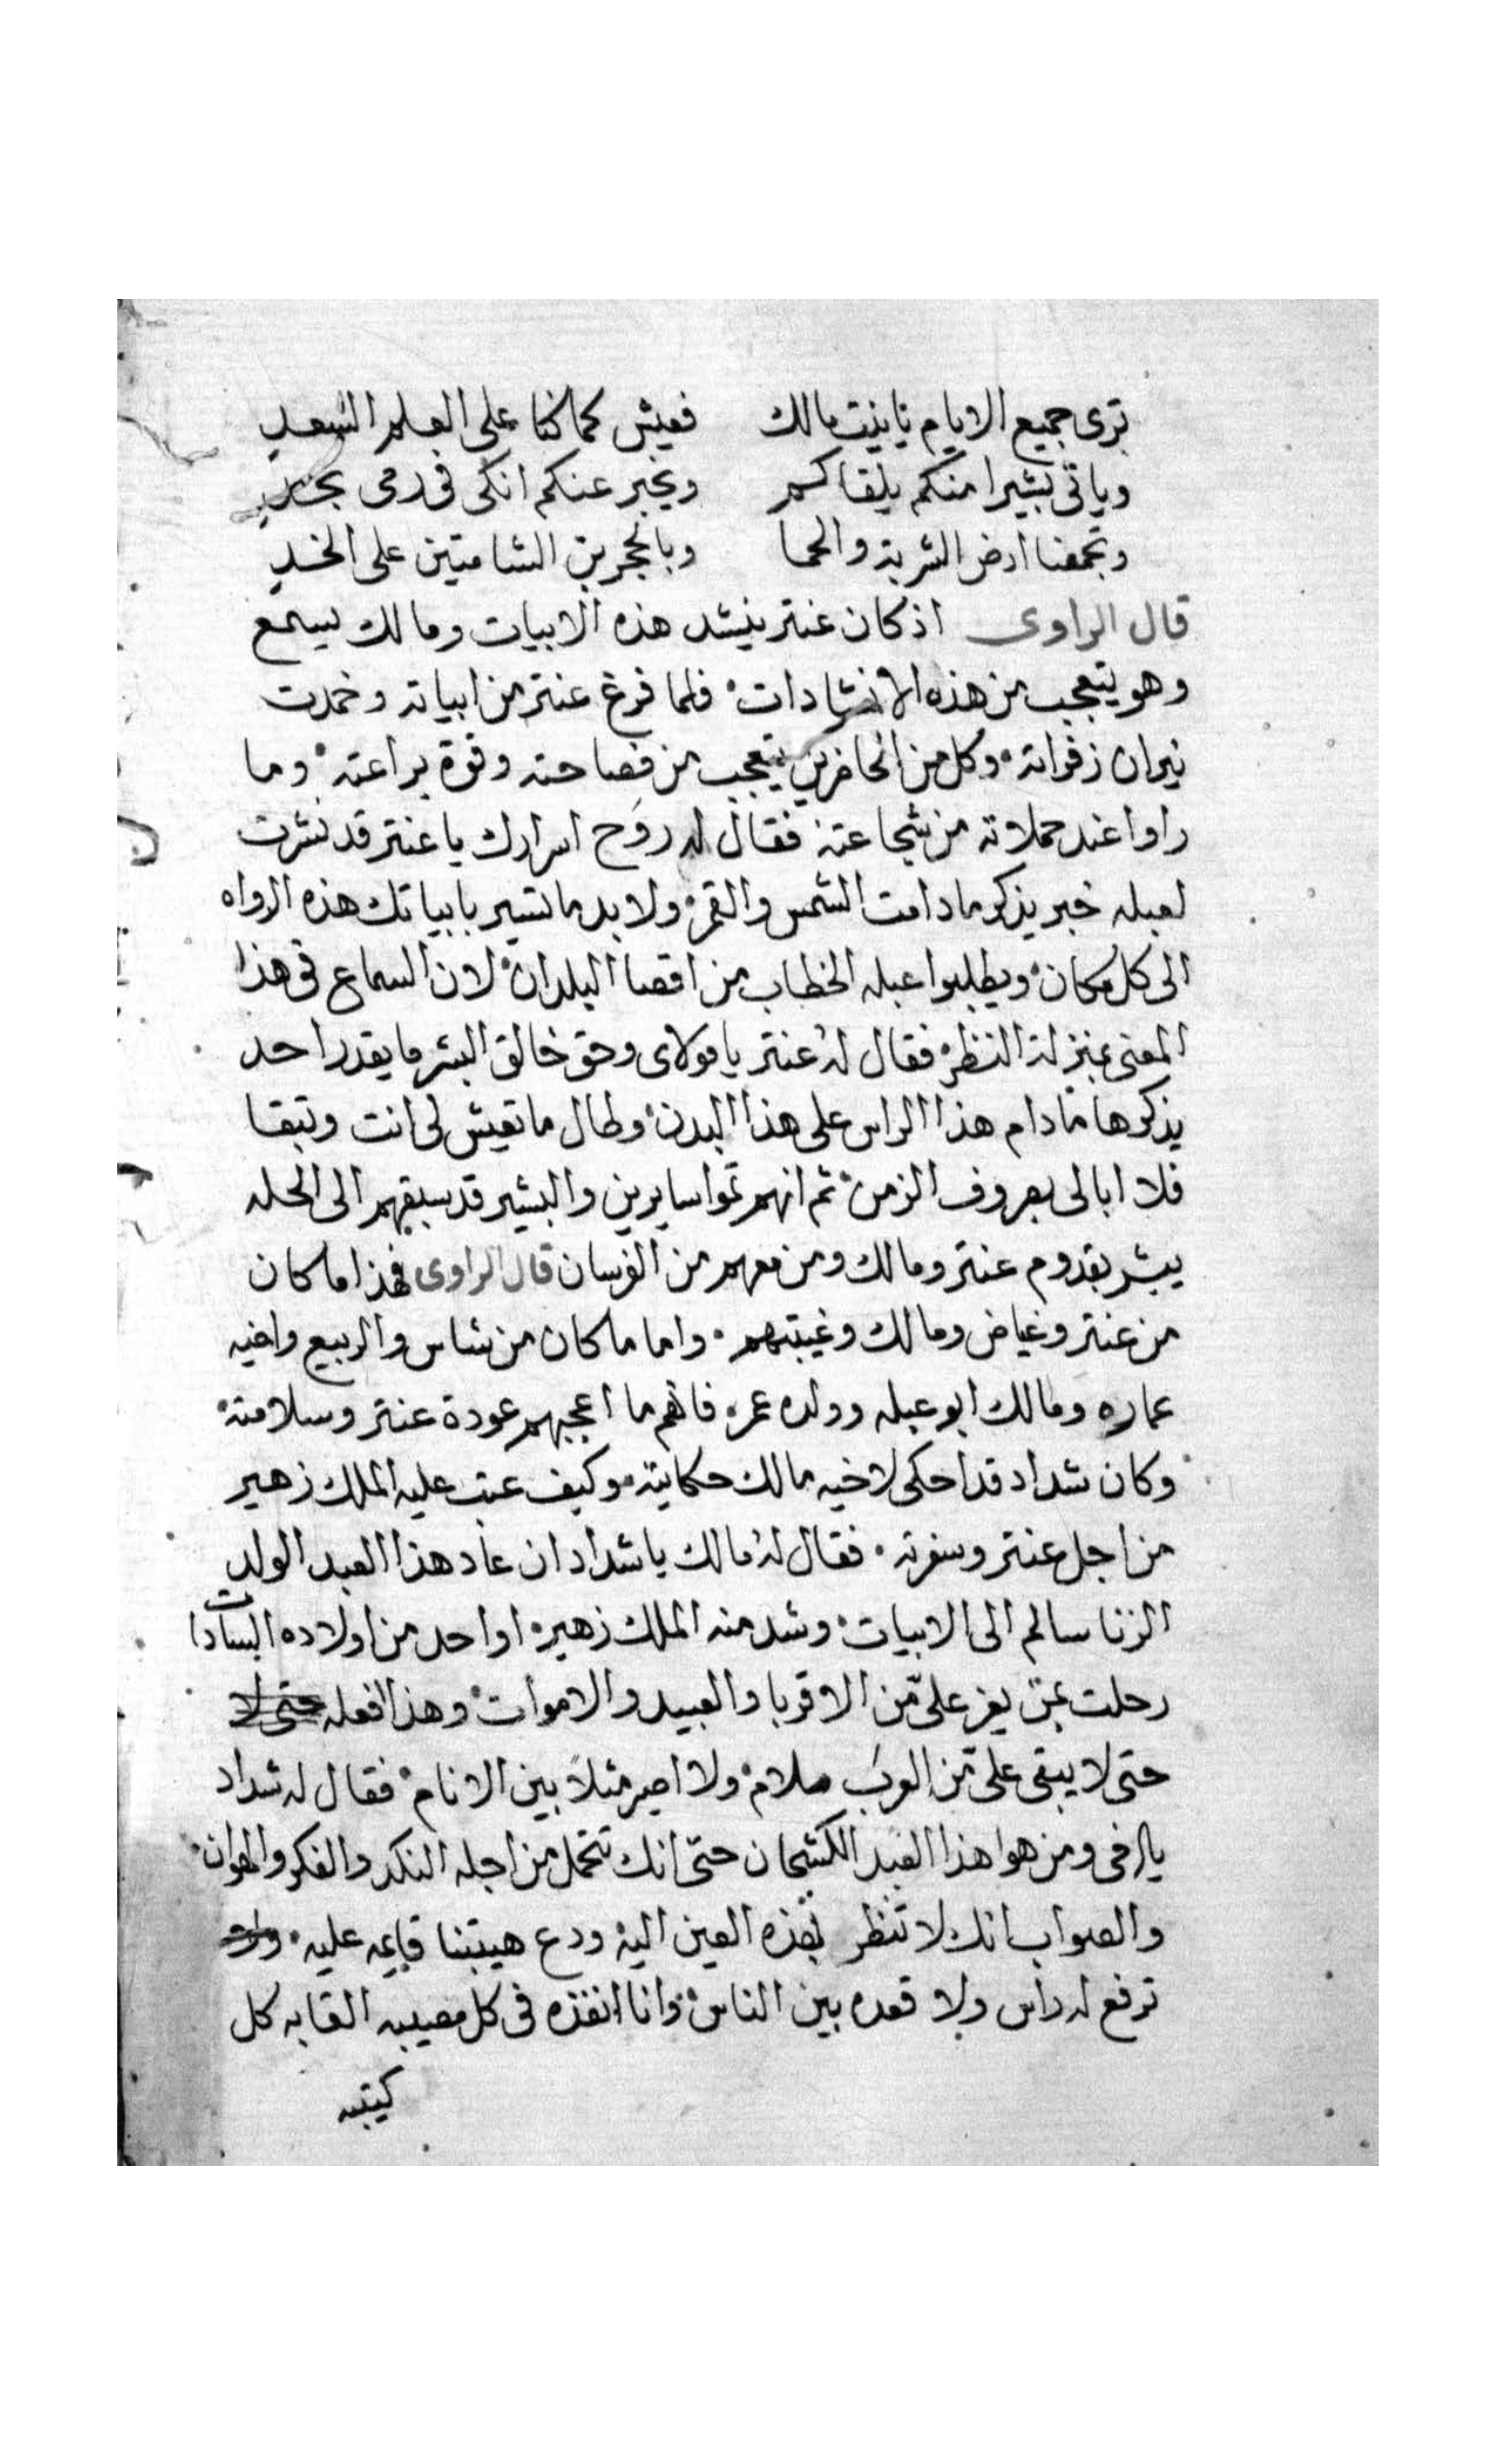 ترى جميع الايام يا بنت مالك فعيش كما كنا على العلم السعد
وياتى بشيرا منكم بلقاكم ويخبر عنكم انكى فى دمى بجد
وتجمعنا ارض الشربة والحما وبالحجرين الشامتين على الخد
قال الراوى اذ كان عنتر ينشد هذه الابيات ومالك يسمع
وهو يتعجب من هذه الانشادات فلما فرغ عنتر من ابياته وخمدت
نيران زفراته وكل من الحاضرين يتعجب من فصاحته وقوة براعته وما
راوا عند حملاته من شجاعته فقال له روح اسرارك يا عنتر قد نشرت
لعبله خبر يذكر ما دامت الشمس والقمر ولا بد ما تسير بابياتك هذه الرواه
الى كل مكان ويطلبوا عبله الخطاب من اقصا البلدان لان السماع فى هذا
المعنى بمنزلة النظر فقال له عنتر يا مولاى وحق خالق البشر ما يقدر احد
يذكرها ما دام هذا الراس على هذا البدن وطال ما تعيش لى انت وتبقا
فلا ابالى بصروف الزمن ثم انهم تموا سايرين والبشير قد سبقهم الى الحله
يبشر بقدوم عنتر ومالك ومن معهم من الفرسان قال الراوى فهذا ما كان
من عنتر وغياض ومالك وغيبتهم واما ما كان من شاس والربيع واخيه
عماره ومالك ابو عبله وولده عمر فانهم ما اعجبهم عودة عنتر وسلامته
وكان شداد قد احكى لاخيه مالك حكايته وكيف عتب عليه الملك زهير
من اجل عنتر وسفرته فقال له مالك يا شداد ان عاد هذا العبد الولد
الزنا سالم الى الابيات وشد منه الملك زهير او احد من اولاده السادات
رحلت بمن يعز على من الاقربا والعبيد والاموات وهذا افعله حتى لا
حتى لا يبقى على من العرب ملام ولا اصير مثلا بين الانام فقال له شداد
يا اخى ومن هوا هذا العبد الكشحان حتى انك تتحمل من اجله النكد والفكر والهوان
والصواب انك لا تنظر بهذه العين اليه ودع هيبتنا قايمه عليه
ترفع له راس ولا قعده بين الناس وانا انفذه فى كل مصيبه القا به كل
كتيبه